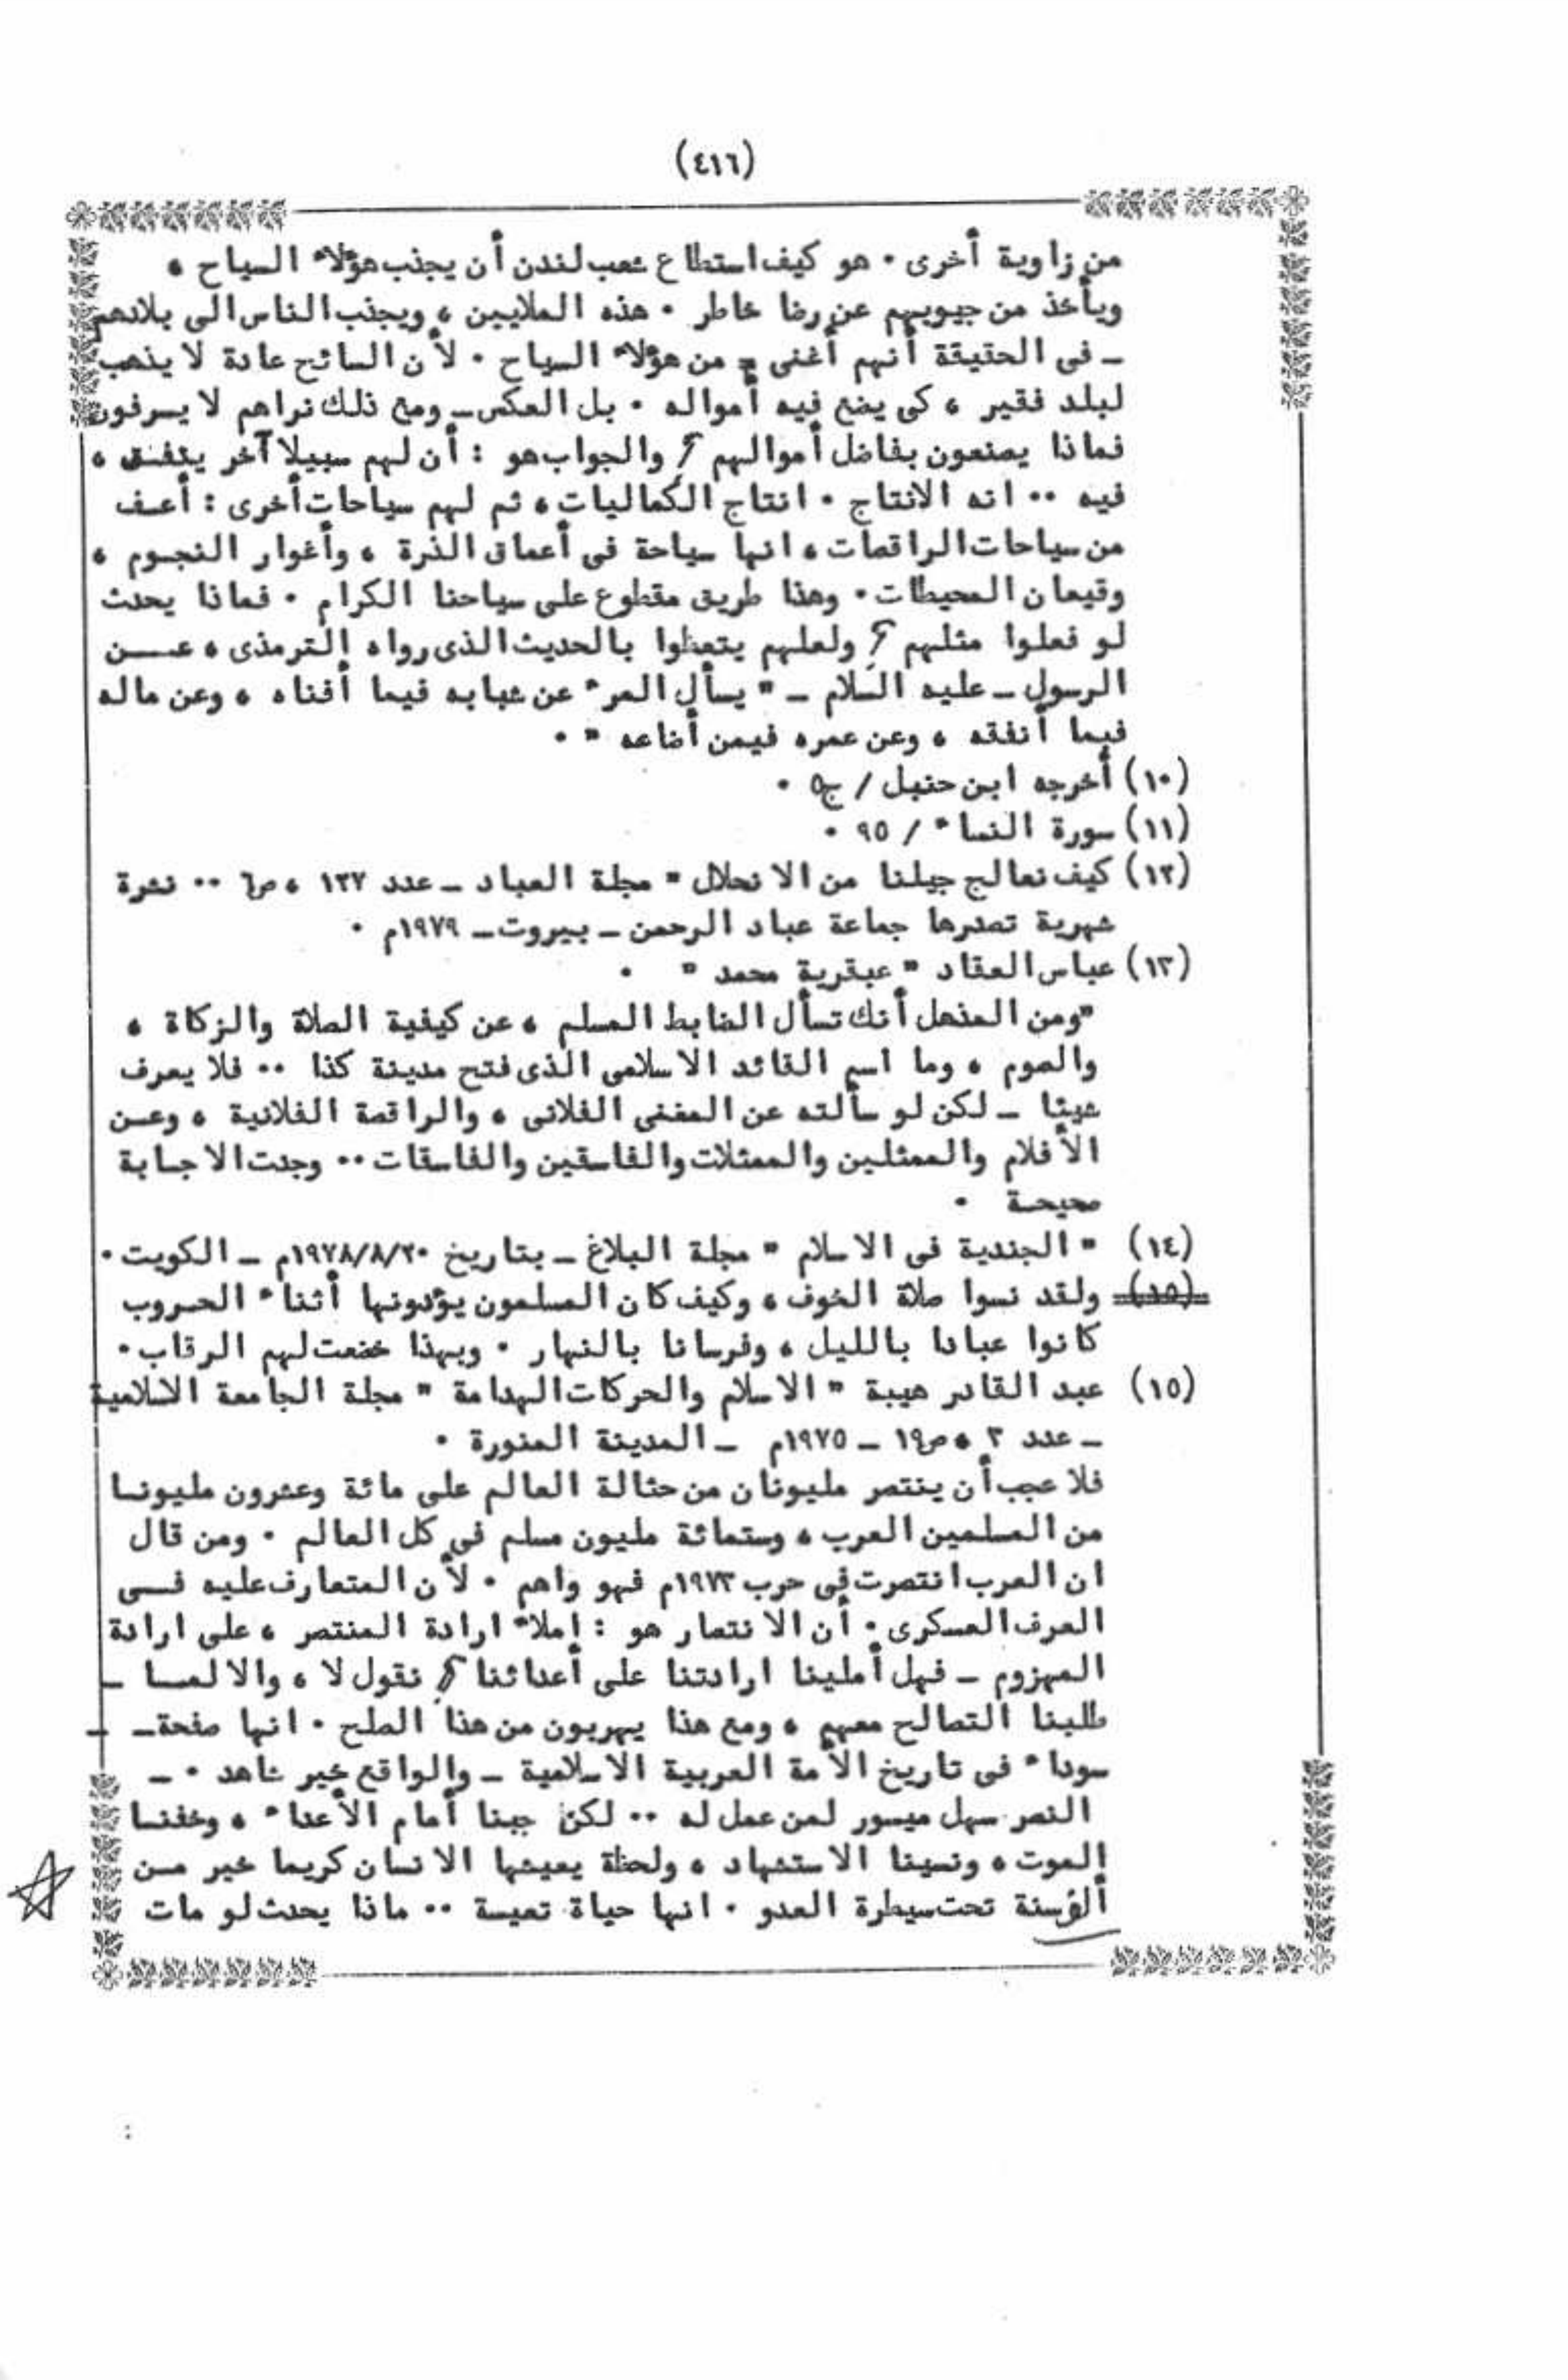 (٤١٦)
من زاوية أخرى ٠ هو كيف استطاع شعب لندن أن يجذب هؤلاء السياح ،
ويأخذ من جيوبهم عن رضا خاطر ٠ هذه الملايين ، ويجذب الناس الى بلادهم
ـ فى الحقيقة أنهم أغنى من هؤلاء السياح ٠ لأن السائح عادة لا يذهب
لبلد فقير ، كى يضع فيه أمواله ٠ بل العكس ـ ومع ذلك نراهم لا يسرفون
فماذا يصنعون بفاضل أموالهم ؟ والجواب هو : أن لهم سبيلا آخر ينفق ،
فيه ٠٠ انه الانتاج ٠ انتاج الكماليات ، ثم لهم سياحات أخرى : أعف
من سياحات الراقصات ، انها سياحة فى أعماق الذرة ، وأغوار النجوم ،
وقيعان المحيطات ٠ وهذا طريق مقطوع على سياحنا الكرام ٠ فماذا يحدث
لو فعلوا مثلهم ؟ ولعلهم يتعظوا بالحديث الذى رواه الترمذى ، عن
الرسول ـ عليه السلام ـ " يسأل المرء عن شبابه فيما أفناه ، وعن ماله
فيما أنفقه ، وعن عمره فيمن أضاعه " ٠
(١٠) أخرجه ابن حنبل / ج٥ ٠
(١١) سورة النساء / ٩٥ ٠
(١٢) كيف نعالج جيلنا من الانحلال " مجلة العباد ـ عدد ١٣٧ ، ص٦ ٠٠ نشرة
شهرية تصدرها جماعة عباد الرحمن ـ بيروت ـ ١٩٧٩م ٠
(١٣) عباس العقاد " عبقرية محمد " ٠
"ومن المذهل أنك تسأل الضابط المسلم ، عن كيفية الصلاة والزكاة ،
والصوم ، وما اسم القائد الاسلامى الذى فتح مدينة كذا ٠٠ فلا يعرف
شيئا ـ لكن لو سألته عن المغنى الفلانى ، والراقصة الفلانية ، وعن
الأفلام والممثلين والممثلات والفاسقين والفاسقات ٠٠ وجدت الاجابة
صحيحة ٠
(١٤) " الجندية فى الاسلام " مجلة البلاغ ـ بتاريخ ١٩٧٨/٨/٢٠م ـ الكويت ٠
(١٥) ولقد نسوا صلاة الخوف ، وكيف كان المسلمون يؤدونها أثناء الحروب
كانوا عبادا بالليل ، وفرسانا بالنهار ٠ وبهذا خضعت لهم الرقاب ٠
(١٥) عبد القادر هيبة " الاسلام والحركات الهدامة " مجلة الجامعة الاسلامية
ـ عدد ٣ ، ص١٩ ـ ١٩٧٥م ـ المدينة المنورة ٠
فلا عجب أن ينتصر مليونان من حثالة العالم على مائة وعشرون مليونا
من المسلمين العرب ، وستمائة مليون مسلم فى كل العالم ٠ ومن قال
ان العرب انتصرت فى حرب ١٩٧٣م فهو واهم ٠ لأن المتعارف عليه فى
العرف العسكرى ٠ أن الانتصار هو : املاء ارادة المنتصر ، على ارادة
المهزوم ـ فهل أملينا ارادتنا على أعدائنا ؟ نقول لا ، والا لما ـ
طلبنا التصالح معهم ، ومع هذا يهربون من هذا الصلح ٠ انها صفحة ـ ـ
سوداء فى تاريخ الأمة العربية الاسلامية ـ والواقع خير شاهد ٠ ـ
النصر سهل ميسور لمن عمل له ٠٠ لكن جبنا أمام الأعداء ، وخفنا
الموت ، ونسينا الاستشهاد ، ولحظة يعيشها الانسان كريما خير من
ألف سنة تحت سيطرة العدو ٠ انها حياة تعيسة ٠٠ ماذا يحدث لو مات